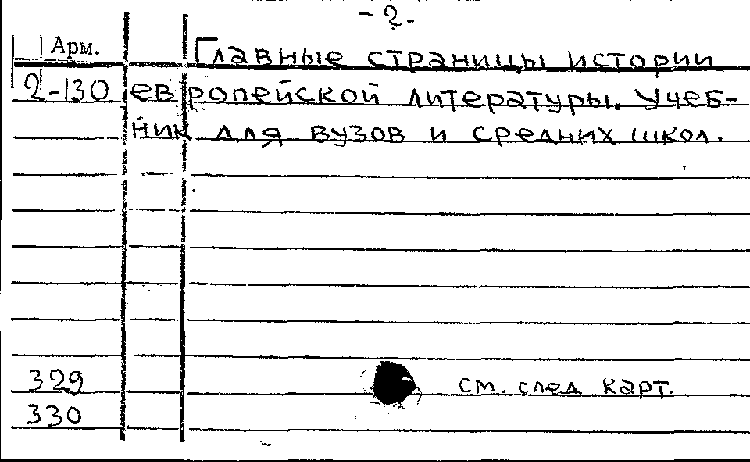 - 2 -
Арм. Главные страницы истории
2-130 европейской литературы. Учеб-
ник для вузов и средних школ.
329 см. след карт.
330